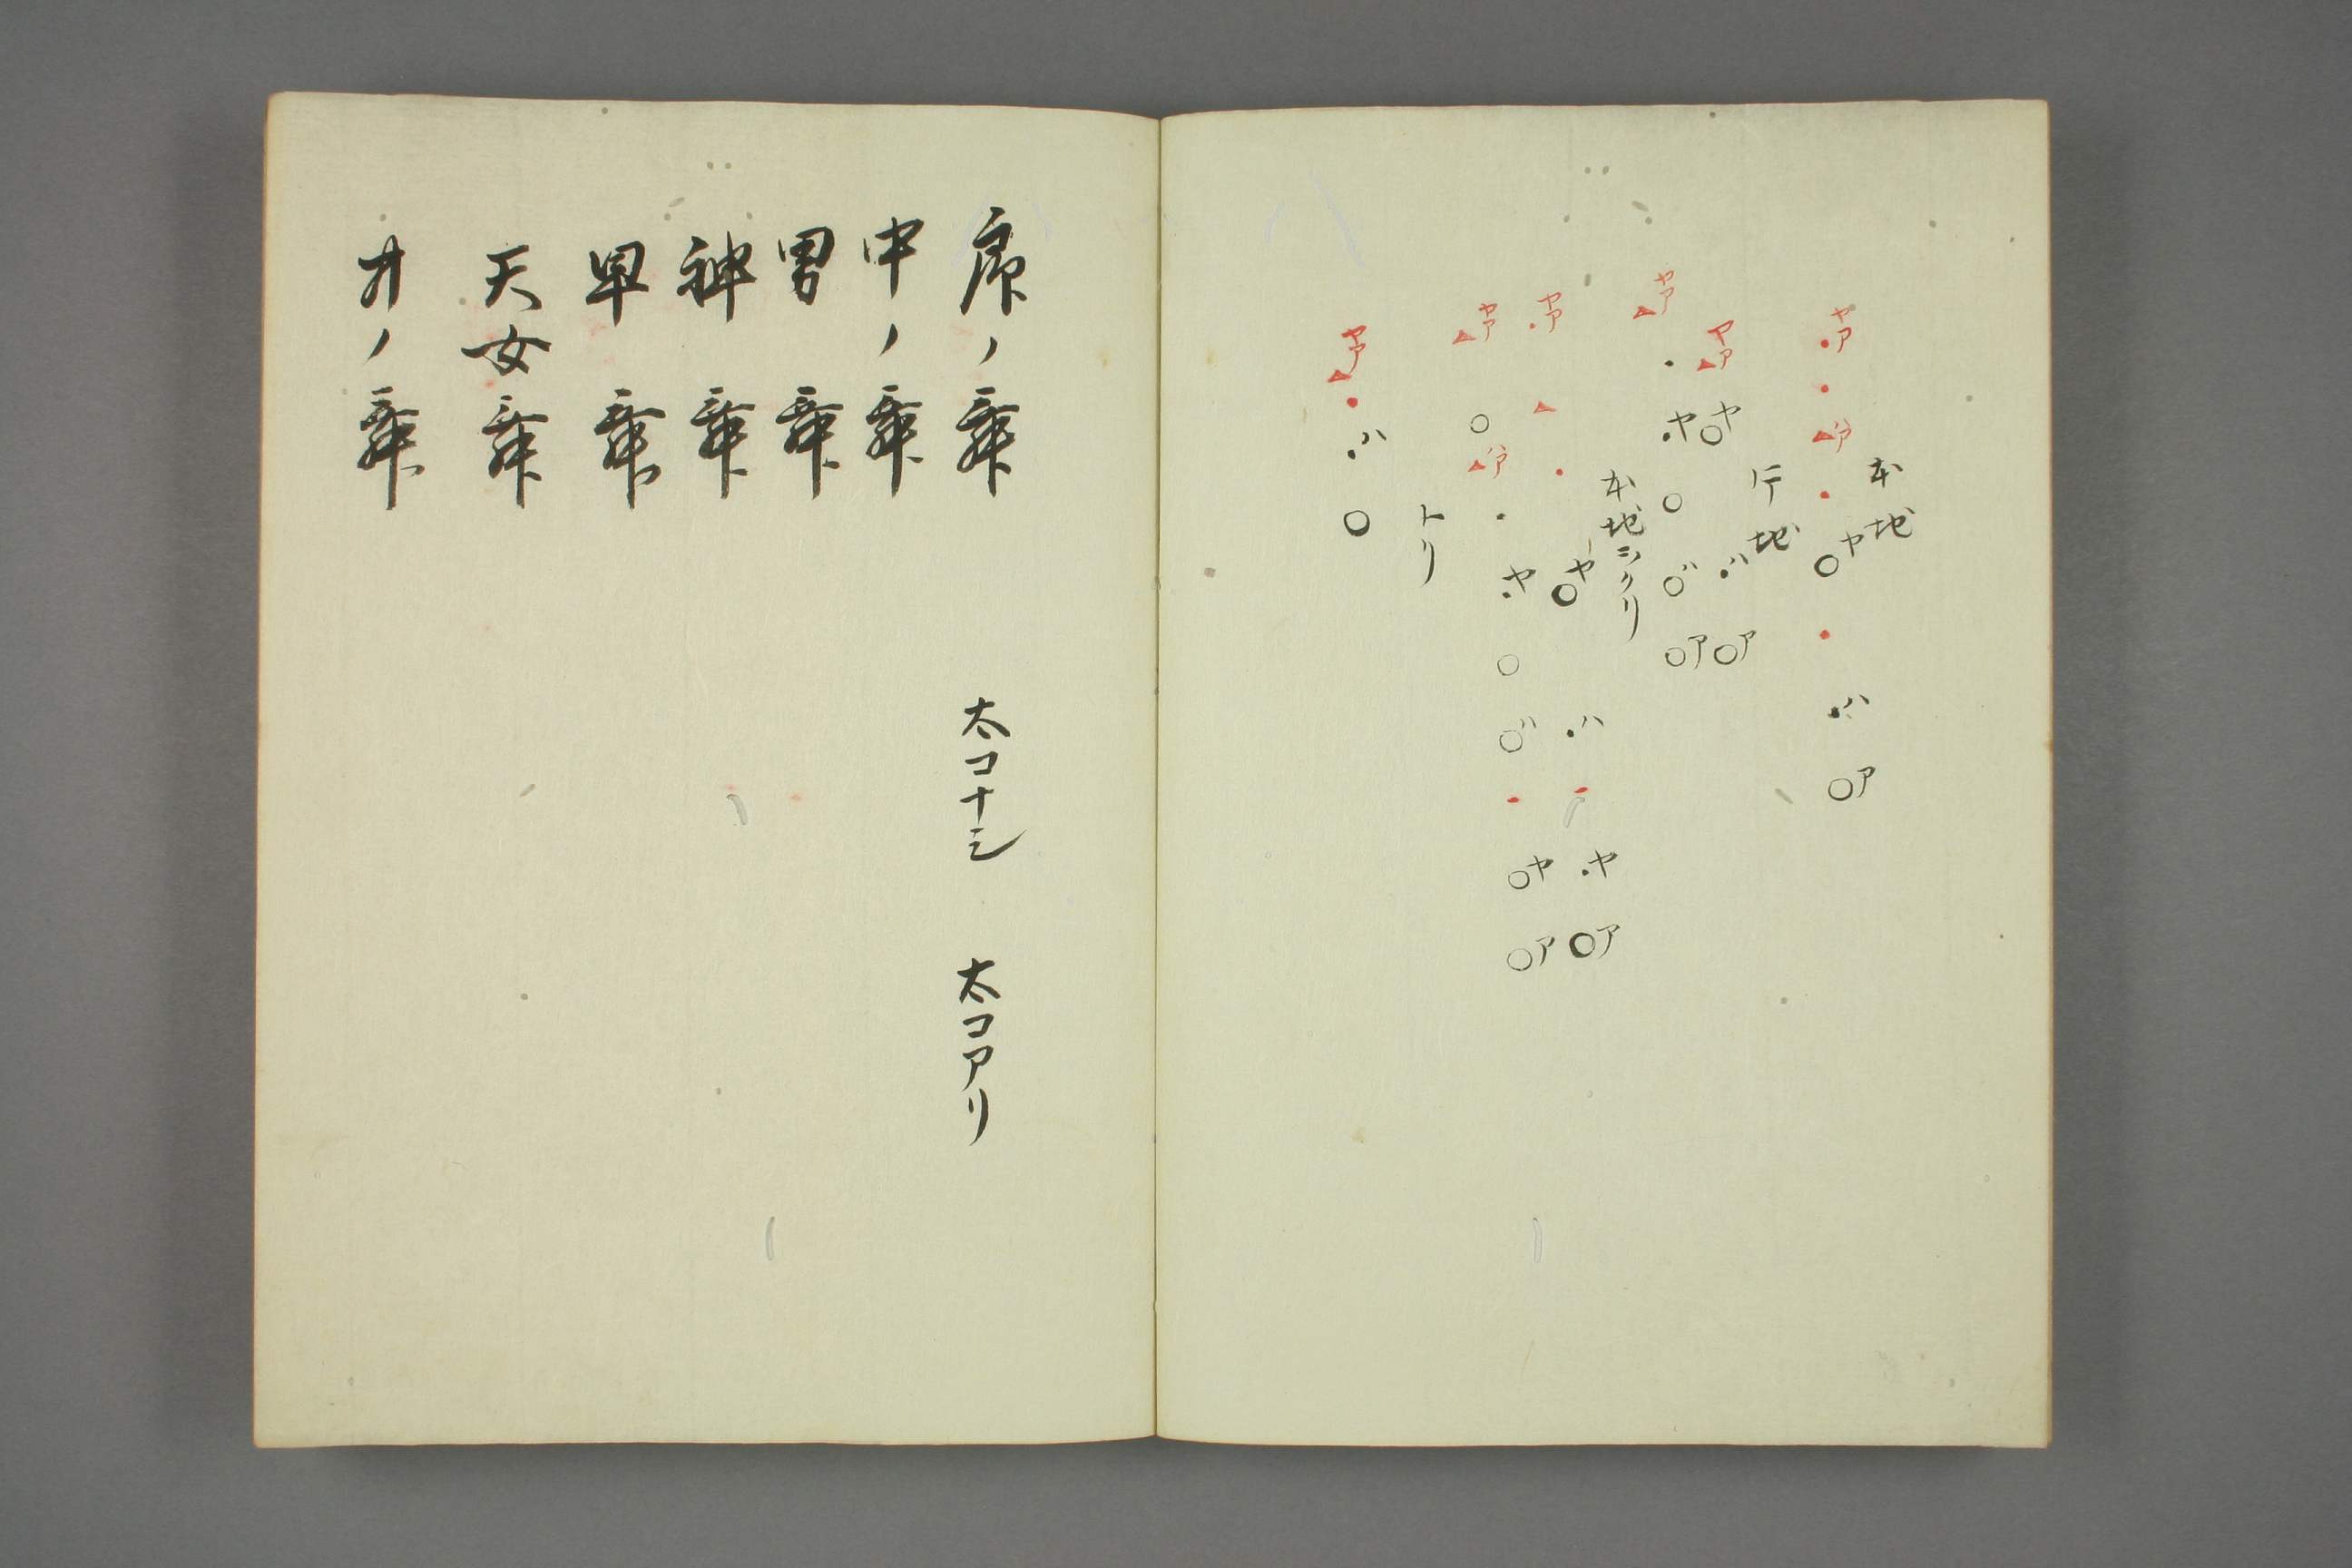 本地
ヤア ア ヤ ハ ア
地
ヤア ヤ ハ ア
ヤア ヤ ハ ア
本地
ヤア ヤ ハ ヤ ア
ヤア ア ヤ ハ ヤ ア
トリ
ヤア ハ
序ノ舞 太コナシ 太コアリ
中ノ舞
男舞
神舞
早舞
天女舞
才ノ舞